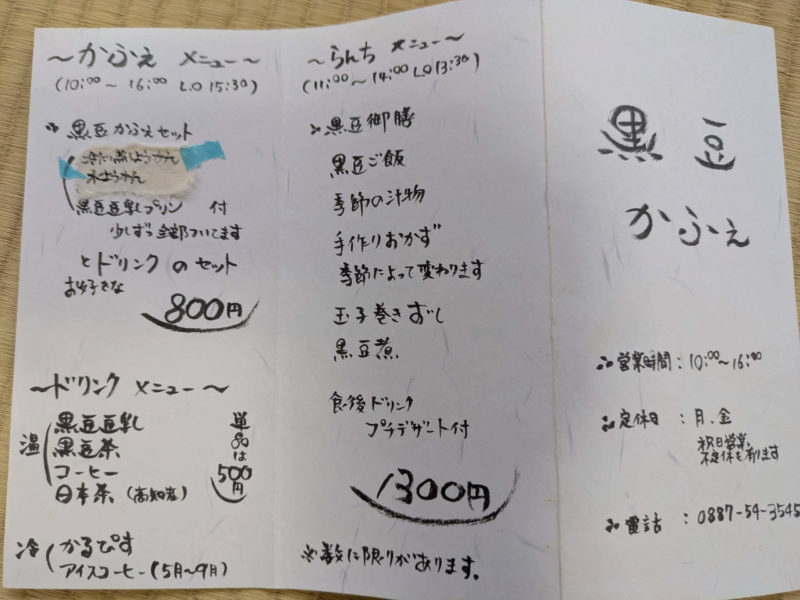 ～かふぇ メニュー～
(10:00～16:00 L.O 15:30)
黒豆かふぇセット
冷たい蒸しようかん
水ようかん
黒豆豆乳プリン 付
少しずつ全部ついてます
とドリンクのセット
お好きな
800円
～ドリンク メニュー～
温
黒豆豆乳
黒豆茶
コーヒー
日本茶(高知産)
単品は
500円
冷
かるぴす
アイスコーヒー(5月～9月)
～らんち メニュー～
(11:00～14:00 L.O 13:30)
黒豆御膳
黒豆ご飯
季節の汁物
手作りおかず
季節によって変わります
玉子巻きずし
黒豆煮
食後ドリンク
プチデザート付
1300円
※数に限りがあります。
黒豆
かふぇ
営業時間：10:00～16:00
定休日：月、金
祝日営業、
不定休も有ります
電話：0887-54-3545